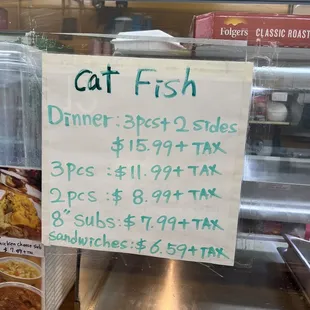 Folgers CLASSIC ROAST
Cat Fish
Dinner: 3pcs+2 sides
$15.99+TAX
3pcs : $11.99+TAX
2pcs : $ 8.99+TAX
8" subs: $7.99+TAX
sandwiches: $6.59+TAX